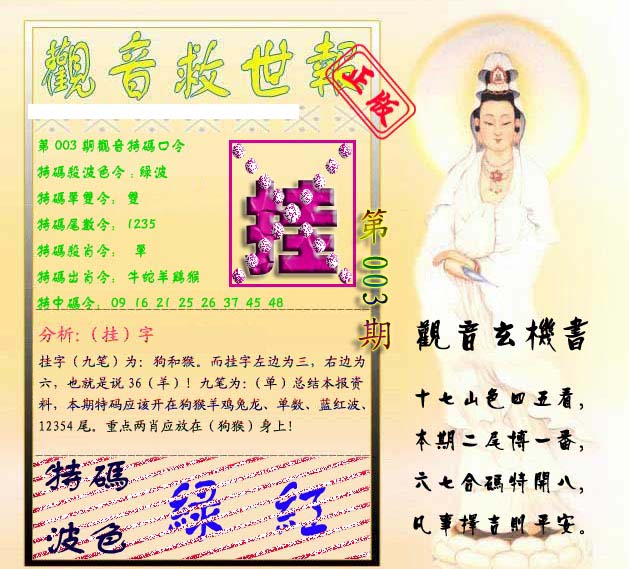 觀音救世報
正版
第003期觀音特碼口令
特碼殺波色令:綠波
特碼單雙令: 雙
特碼尾數令: 1235
特碼殺肖令: 單
特碼出肖令: 牛蛇羊鷄猴
特中碼令: 09 16 21 25 26 37 45 48
挂
第003期
分析:(挂)字
挂字(九笔)为:狗和猴。而挂字左边为三,右边为
六,也就是说36(羊)!九笔为:(单)总结本报资
料,本期特码应该开在狗猴羊鸡兔龙、单数、蓝红波、
12354尾。重点两肖应放在(狗猴)身上!
特碼
波色
綠 紅
觀音玄機書
十七山色四五看,
本期二尾博一番,
六七合碼特開八,
凡事擇吉則平安。